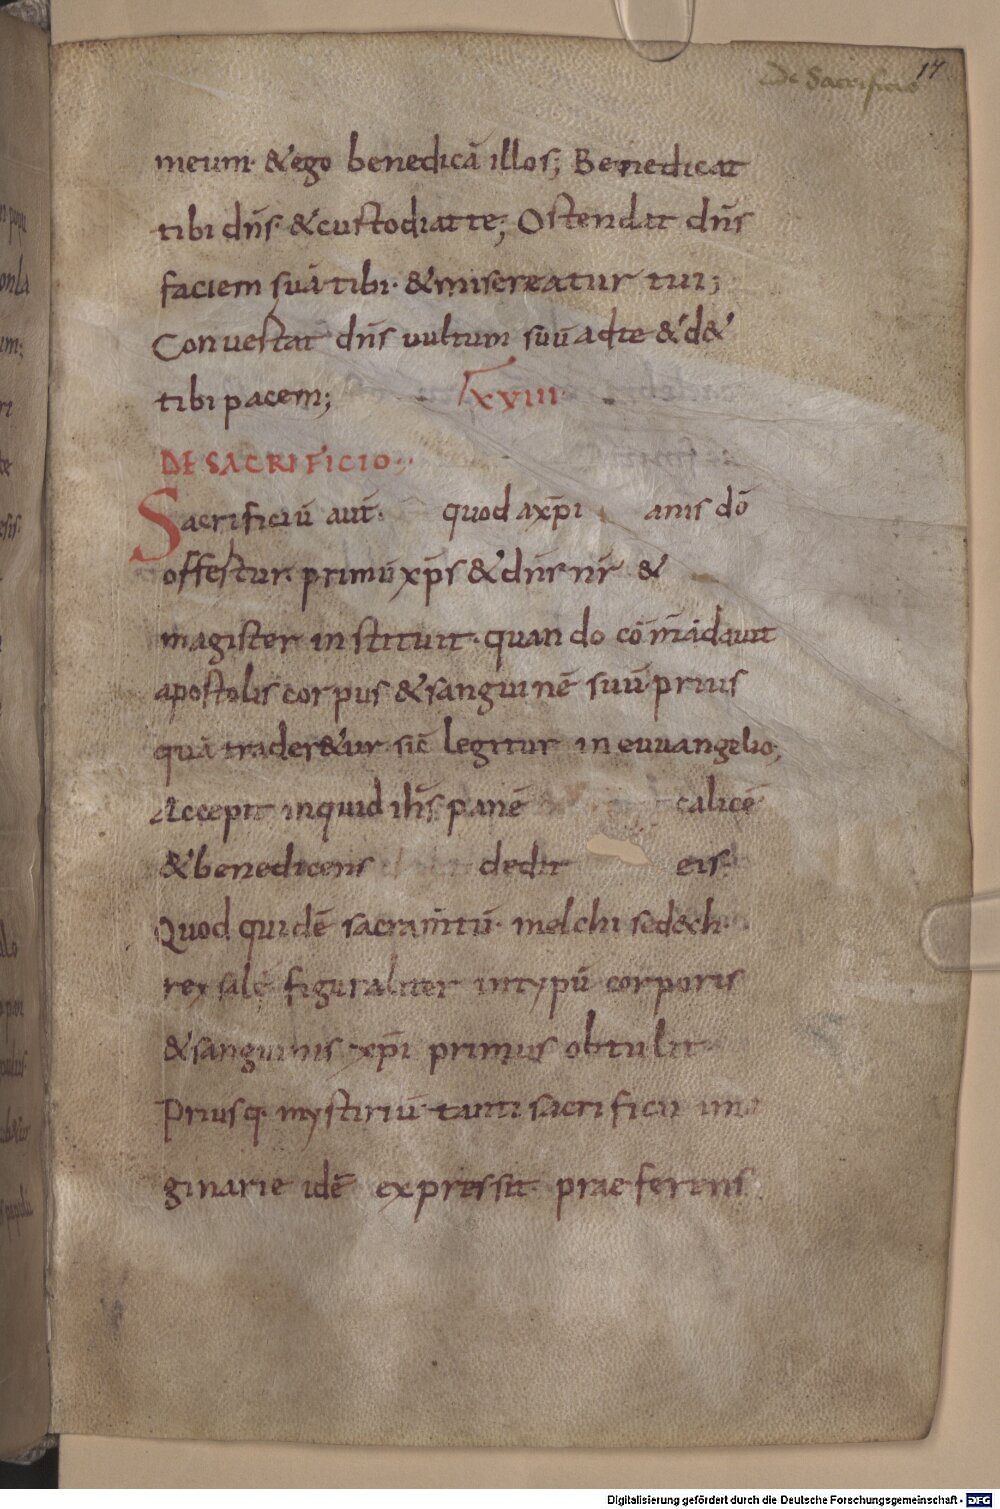 De Sacrificio 17
meum· &ego benedicā illos; Benedicat
tibi dn̄s· &custodiat te; Ostendat dn̄s
faciem suā tibi· &misereatur tui;
Convertat dn̄s vultum suū ad te & d&
tibi pacem; LXXVIII
DE SACRIFICIO·
Sacrificiū aut̄· quod a xp̄i anis dō
offertur· primū xp̄s & dn̄s nr̄ &
magister instituit· quando cōmādavit
apostolis corpus & sanguinē suū· prius
quā trader&ur· sic̄ legitur in euuangelio;
Accepit inquid ih̄s panē calicē
& benedicens dedit eis·
Quod quidē sacram̄tū· melchisedech·
rex salē figuraliter in typū corporis
& sanguinis xp̄i primus obtulit·
Priusq· mystiriū tanti sacrificii ima
ginarie idē expressit· praeferens
Digitalisierung gefördert durch die Deutsche Forschungsgemeinschaft - DFG